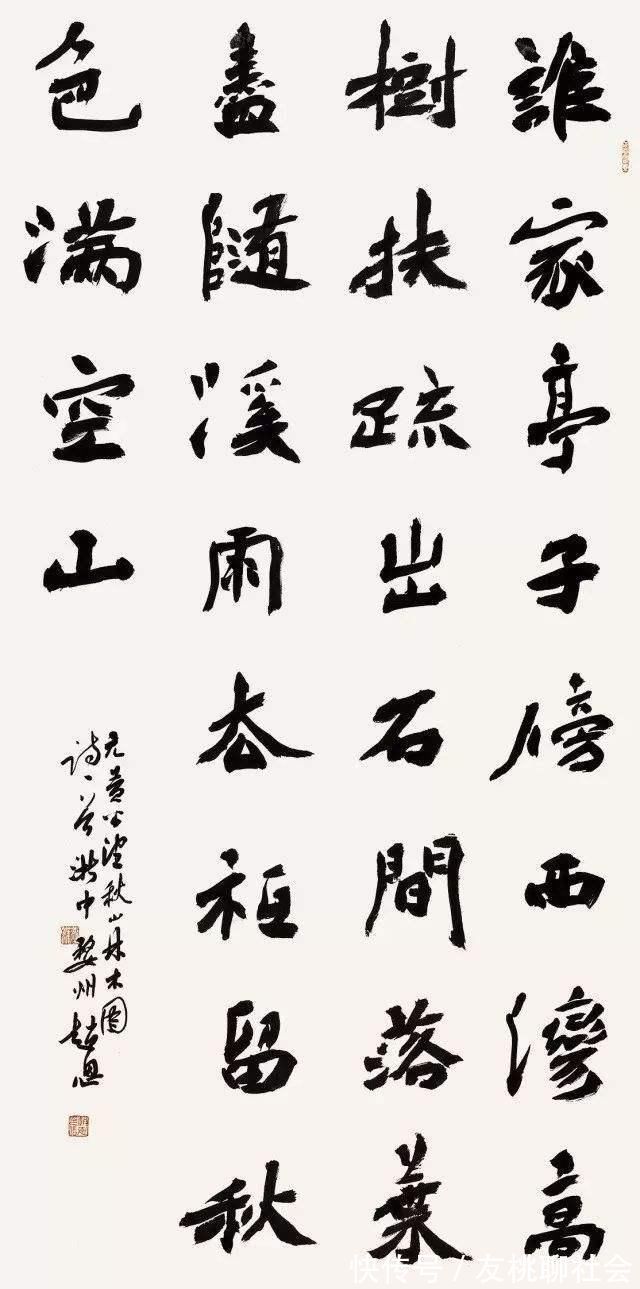 誰家亭子傍西灣高
樹扶疏出石間落葉
盡隨溪雨去祗留秋
色满空山
元黄公望秋山林木圖
詩一首浙中婺州趙恩
快传号/友桃聊社会